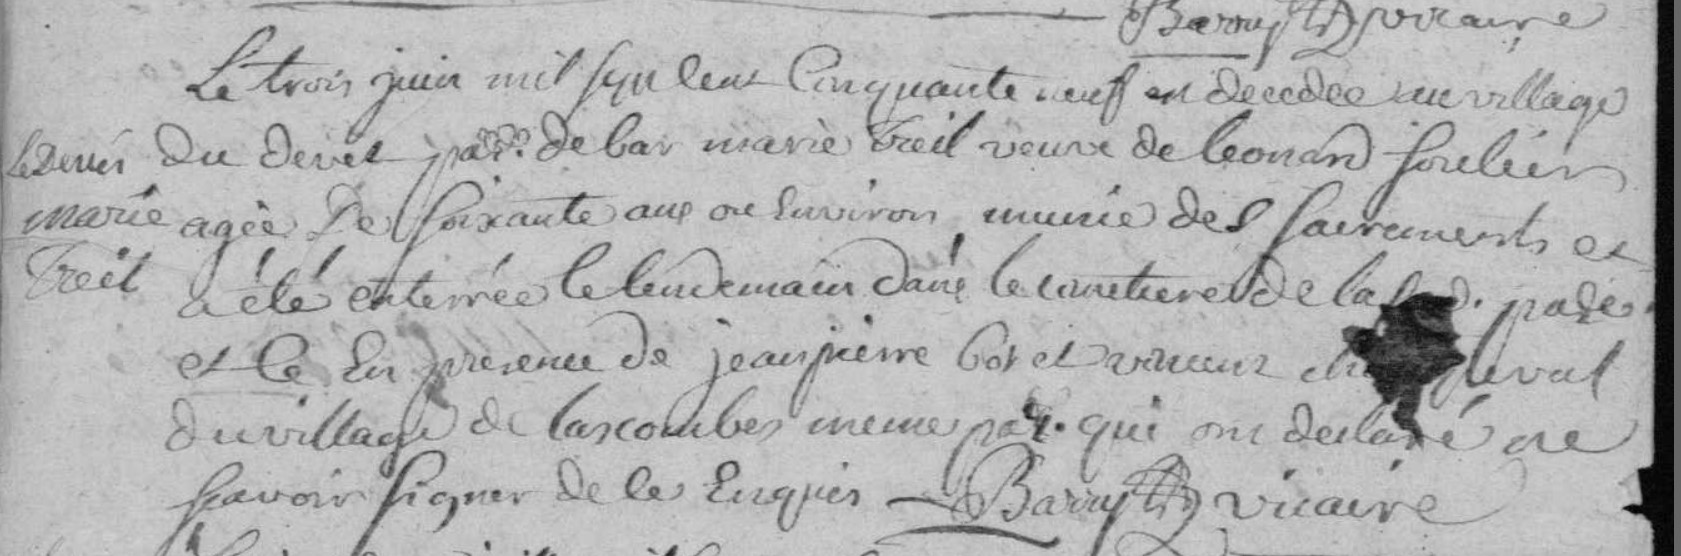 Barry vicaire
Le trois juin mil sept cent Cinquante neuf est decedée au village
Le Deux du devet parse. de bar marie Treil veuve de leonard souliers
marie agée De soixante ans ou Environ munie des sacrements et
Treil a été enterrée le lendemain dans le cimetiere de la d. parse.
et ce En presence de jean pierre bos et vincent
du village de lascombes meme par. qui ont declaré ne
scavoir signer de ce Enquis Barry vicaire